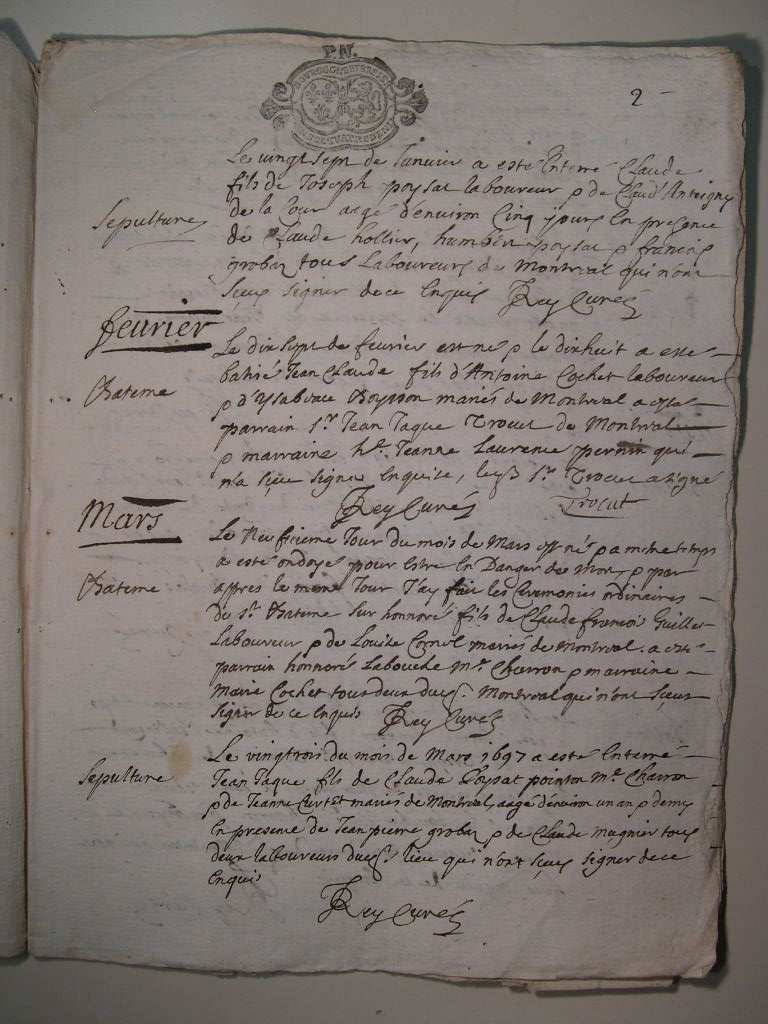 P.N.
2
Le vingt sept de Januier a esté Enterré Claude
fils de Joseph poysat laboureur & de Claud' Antoigny
Sepulture
de la Cour aagé d'enuiron Cinq jours En presence
de Claude hollier, humber poysat & francois
grobaz tous Laboureurs de Montreal qui n'ont
sçeus signer de ce Enquis JRey Curé
feurier
Le dix sept de feurier est né & le dixhuit a esté
batisé Jean Claude fils d'Antoine Cochet laboureur
Bateme
& d'Ysabeau Boysson mariés de Montreal a esté
parrain Sr. Jean Jaque Trocut de Montreal
& marraine he. Jeanne Laurence pernin qui
n'a sçeu signer Enquise, led. Sr. Trocut a signé
JRey Curé Trocut
Mars
Le Neufuieme Jour du mois de Mars est né & a mesme temps
a esté ondoyé pour estre En Danger de Mort & par
Bateme
appres le mesme Jour J'ay fait les Ceremonies ordinaires
du St. Bateme sur honnoré fils de Claude francois Guillet
Laboureur & de Louise mariés de Montreal. a esté
parrain honnoré Labouche Me. Charron & marraine
Marie Cochet tous deux dud. Montreal qui n'ont sçeus
signer de ce Enquis JRey Curé
Le vingtrois du mois de Mars 1697 a esté Enterré
Sepulture
Jean Jaque fils de Claude Poysat pointon Me. Charron
& de Jeanne Curtet mariés de Montreal, aagé d'enuiron un an & demy
En presence de Jean pierre grobaz & de Claude mugnier tous
deux laboureurs dud. lieu qui n'ont sçeus signer de ce
Enquis
JRey Curé